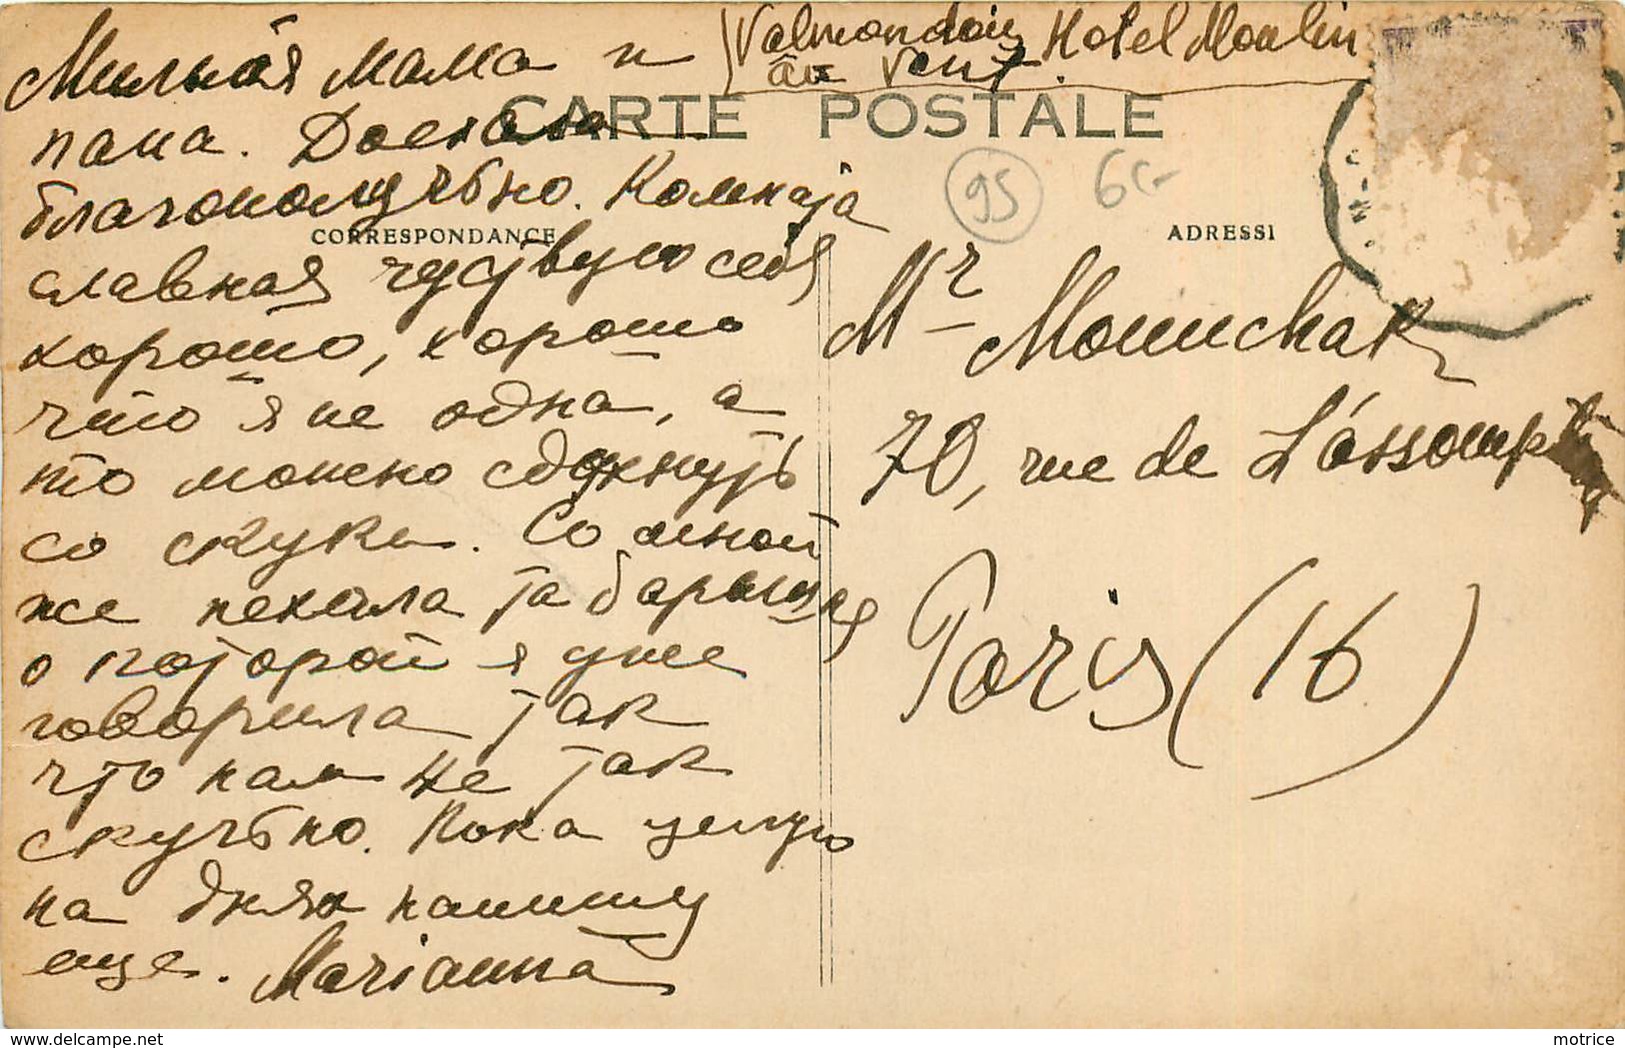 Valmondois Hotel Moulin
au Vent.
Милыя мама и
папа. Доехала
CARTE POSTALE
благополучьно. Комната
95
CORRESPONDANCE
ADRESSE
славная чуствую себя
хорошо, хорошо
что я не одна, а
то можно сдохнуть
со скуки. Со мной
же поехала та барышня
о которой я уже
говорила так
что нам не так
скучьно. Пока целую
на днях напишу
еще. Marianna
Mr Mounchak
70, rue de L'assompt
Paris (16)
motrice